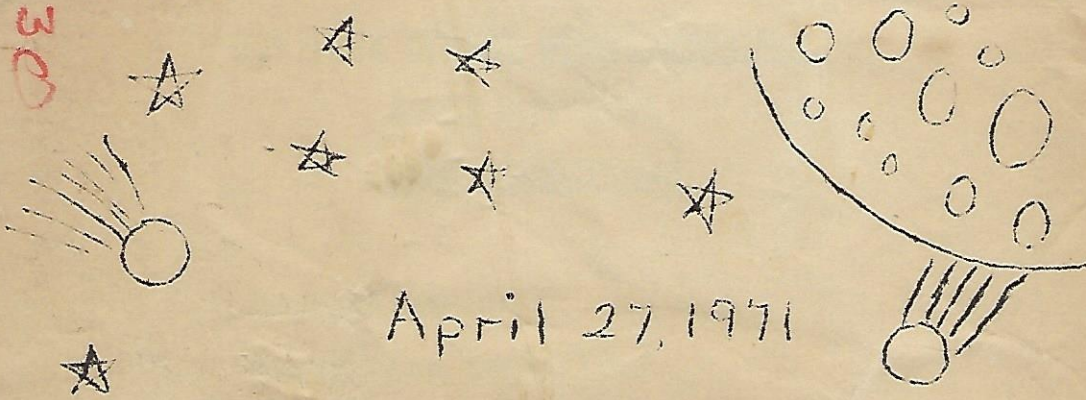 30
April 27, 1971